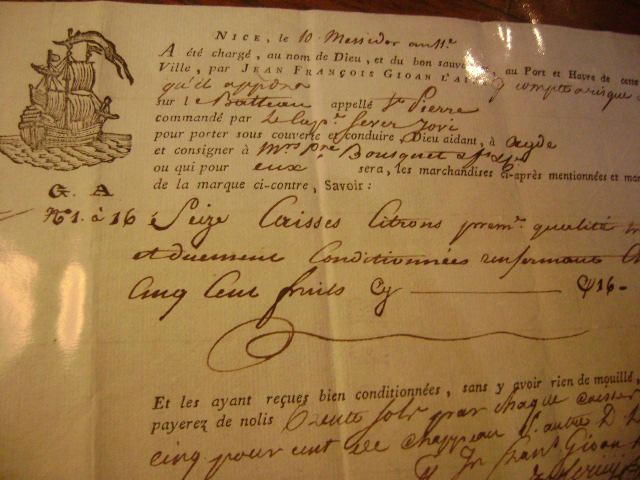 NICE, le 10 Messidor an 11.e
A été chargé, au nom de Dieu, et du bon sauve au Port et Havre de cette
Ville, par JEAN FRANÇOIS GIOAN L'A compte & risque
qu'il appartt
sur l Batteau appellé St Pierre
commandé par Le Cap.e Sever Jovi
pour porter sous couverte et conduire, Dieu aidant, à Agde
et consigner à Mrs Pre Bousquet
ou qui pour eux sera, les marchandises ci-après mentionnées et mar
de la marque ci-contre, Savoir :
G. A
N° 1. à 16 Seize Caisses Citrons prem.e qualité
et duement Conditionnées renfermant
Cinq Cent fruits Cy C/16-
Et les ayant reçues bien conditionnées, sans y avoir rien de mouillé,
payerez de nolis Trente sols par chaque caisse
cinq pour cent de chappeau l'autre D
Jn Franc.s Gioan